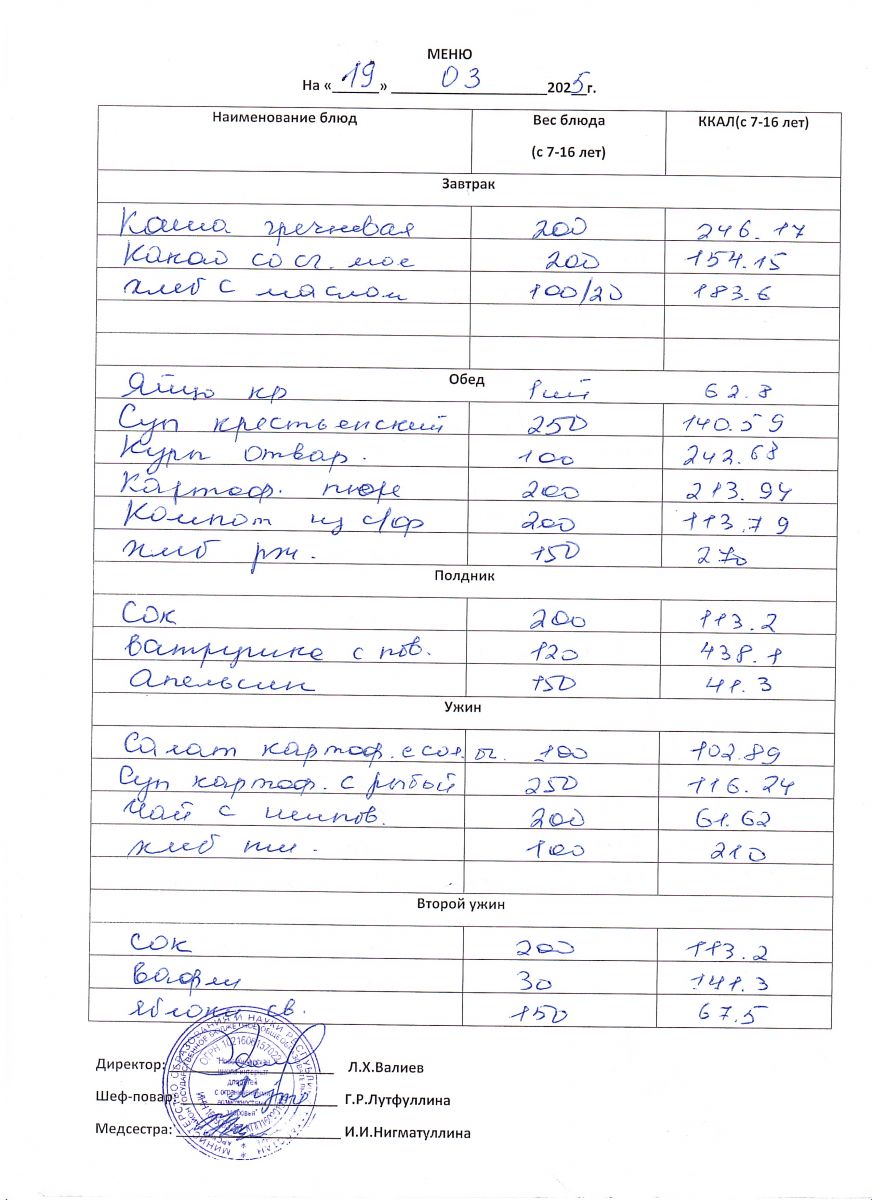 МЕНЮ
На « 19 » 03 2025 г.
Наименование блюд Вес блюда (с 7-16 лет) ККАЛ(с 7-16 лет)
Завтрак
Каша гречневая 200 246.17
Какао со сг. мол 200 154.15
хлеб с маслом 100/20 183.6
Обед
Яйцо кр 1шт 62.8
Суп крестьенский 250 140.59
Куры отвар. 100 242.68
Картоф. пюре 200 213.94
Компот из с/ф 200 113.79
хлеб рж. 150 270
Полдник
Сок 200 113.2
Ватрушка с пов. 120 438.1
Апельсин 150 41.3
Ужин
Салат картоф. с сол. ог. 100 102.89
Суп картоф. с рыбой 250 116.24
Чай с шипов. 200 61.62
хлеб пш. 100 210
Второй ужин
Сок 200 113.2
Вафли 30 141.3
Яблоки св. 150 67.5
Директор: Л.Х.Валиев
Шеф-повар: Г.Р.Лутфуллина
Медсестра: И.И.Нигматуллина